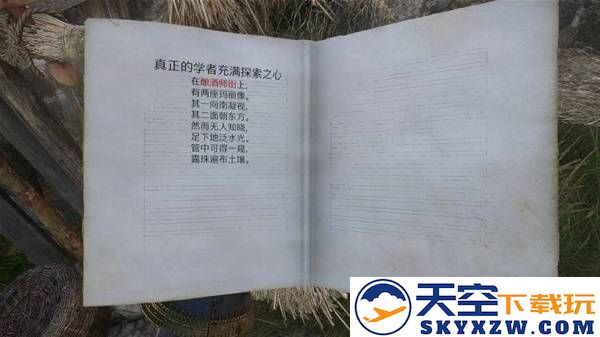 真正的学者充满探索之心
在酿酒师街上,
有两座玛丽像。
其一向南凝视,
其二面朝东方。
然而无人知晓,
足下地泛水光。
管中可得一窥,
露珠遍布土壤。
天空下载玩
SKYXZW.COM